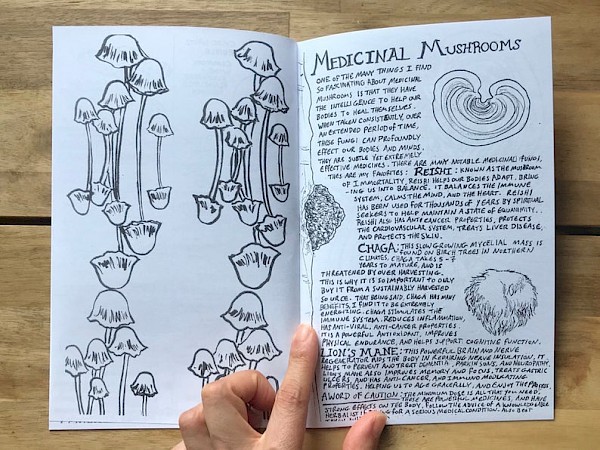 MEDICINAL MUSHROOMS
ONE OF THE MANY THINGS I FIND
SO FASCINATING ABOUT MEDICINAL
MUSHROOMS IS THAT THEY HAVE
THE INTELLIGENCE TO HELP OUR
BODIES TO HEAL THEMSELVES.
WHEN TAKEN CONSISTENTLY, OVER
AN EXTENDED PERIOD OF TIME,
THESE FUNGI CAN PROFOUNDLY
EFFECT OUR BODIES AND MINDS.
THEY ARE SUBTLE YET EXTREMELY
EFFECTIVE MEDICINES. THERE ARE MANY NOTABLE MEDICINAL FUNGI,
THESE ARE MY FAVORITES: REISHI: KNOWN AS THE MUSHROOM
OF IMMORTALITY, REISHI HELPS OUR BODIES ADAPT. BRING
-ING US INTO BALANCE. IT BALANCES THE IMMUNE
SYSTEM, CALMS THE MIND, AND THE HEART. REISHI
HAS BEEN USED FOR THOUSANDS OF YEARS BY SPIRITUAL
SEEKERS TO HELP MAINTAIN A STATE OF EQUANIMITY.
REISHI ALSO HAS ANTI CANCER PROPERTIES, PROTECTS
THE CARDIOVASCULAR SYSTEM, TREATS LIVER DISEASE,
AND PROTECTS THE SKIN.
CHAGA: THIS SLOW GROWING MYCELIAL MASS IS
FOUND ON BIRCH TREES IN NORTHERN
CLIMATES, CHAGA TAKES 5-7
YEARS TO MATURE, AND IS
THREATENED BY OVER HARVESTING.
THIS IS WHY IT IS SO IMPORTANT TO ONLY
BUY IT FROM A SUSTAINABLY HARVESTED
SOURCE. THAT BEING SAID, CHAGA HAS MANY
BENEFITS, I FIND IT TO BE EXTREMELY
ENERGIZING. CHAGA STIMULATES THE
IMMUNE SYSTEM, REDUCES INFLAMMATION,
HAS ANTI-VIRAL, ANTI-CANCER PROPERTIES.
IT IS A POWERFUL ANTIOXIDANT, IMPROVES
PHYSICAL ENDURANCE, AND HELPS SUPPORT COGNITIVE FUNCTION.
LION'S MANE: THIS POWERFUL BRAIN AND NERVE
REGENERATOR AIDS THE BODY IN REPAIRING NERVE INSULATION, IT
HELPS TO PREVENT AND TREAT DEMENTIA, PARKINSONS, AND NEUROPATHY.
LION'S MANE ALSO IMPROVES MEMORY AND FOCUS, TREATS GASTRIC
ULCERS, AND HAS ANTI-CANCER, AND IMMUNE MODULATING
PROPERTIES. HELPING US TO AGE GRACEFULLY, AND ENJOY THE
A WORD OF CAUTION: THE MINIMUM DOSE IS ALL THAT YOU NEED.
THESE ARE POWERFUL MEDICINES, AND HAVE
STRONG EFFECTS ON THE BODY. FOLLOW THE ADVICE OF A KNOWLEDGEABLE
HERBALIST FOR A SERIOUS MEDICAL CONDITION. ALSO